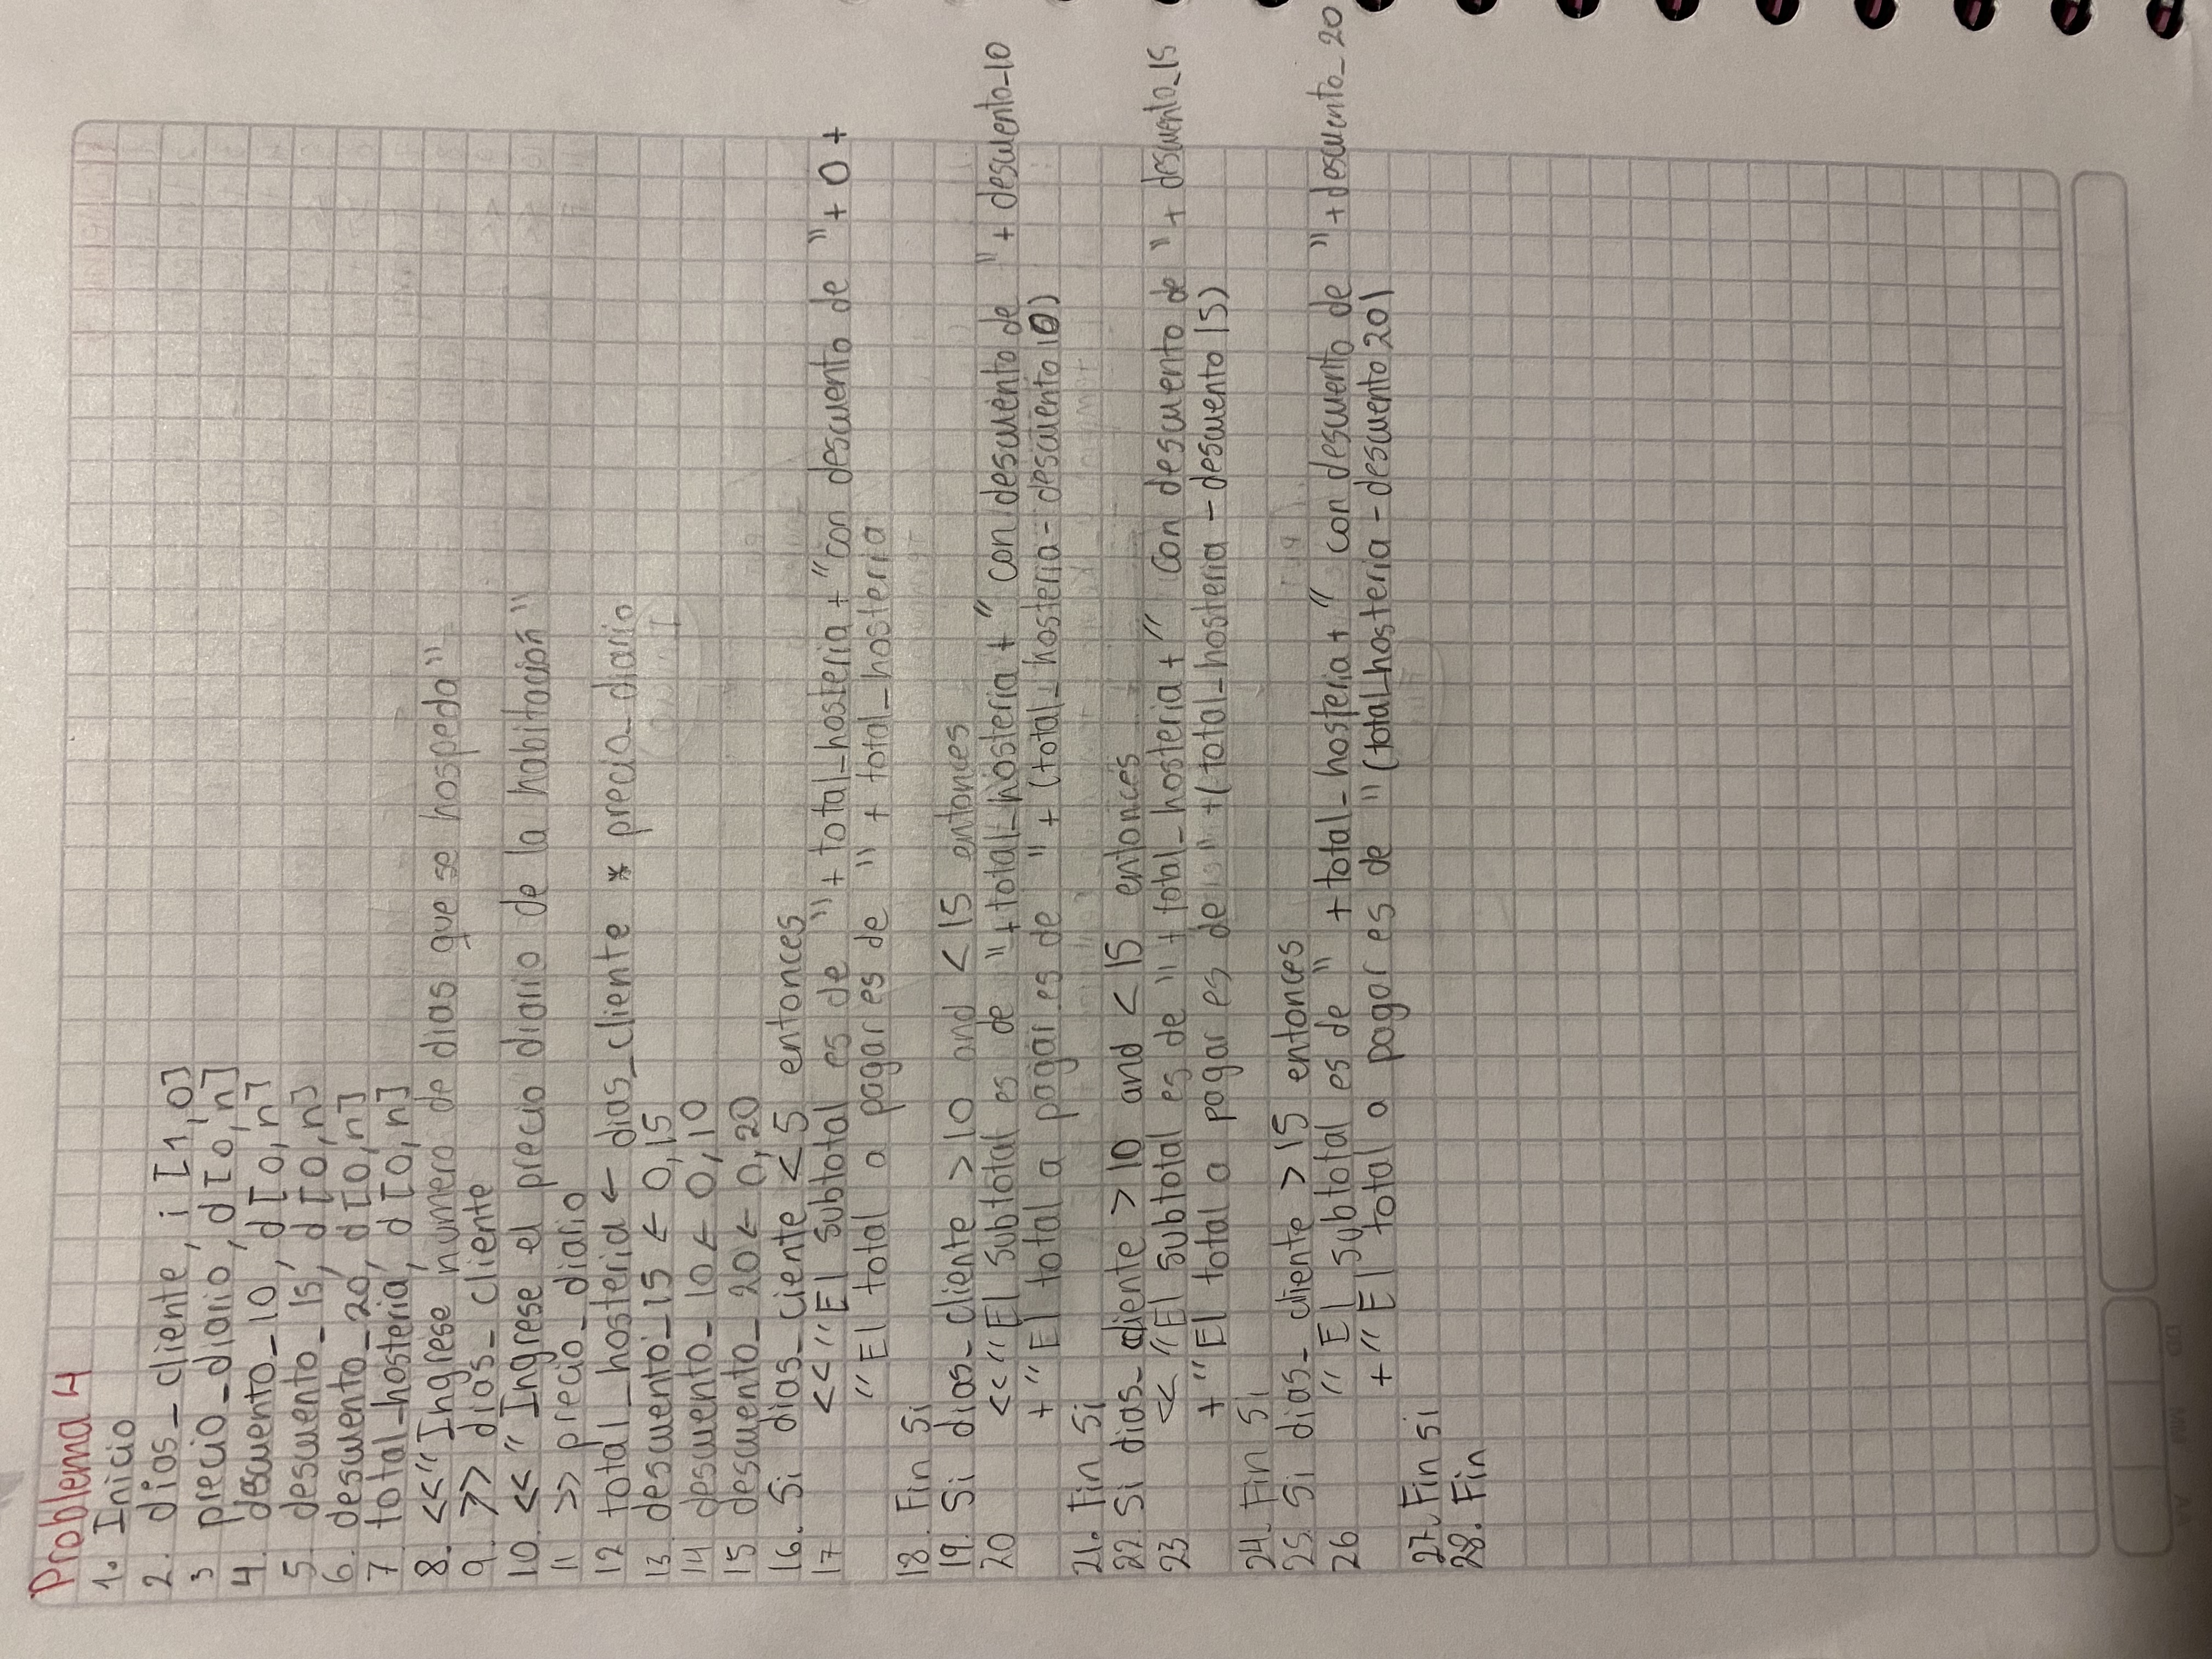 Problema 4
1. Inicio
2. dias_cliente, i [1,0]
3 precio_diario, d[0,n]
4. descuento_10, d[0,n]
5. descuento_15, d[0,n]
6. descuento_20, d[0,n]
7 total_hosteria, d[0,n]
8. <<"Ingrese numero de dias que se hospeda"
9. >> dias_cliente
10. <<"Ingrese el precio diario de la habitación"
11 >> precio_diario
12 total_hosteria ← dias_cliente * precio_diario
13. descuento_15 ← 0,15
14 descuento_10 ← 0,10
15 descuento_20 ← 0,20
16. Si dias_ciente < 5 entonces
17 <<"El subtotal es de "+ total_hosteria + "con descuento de "+ 0 +
"El total a pagar es de " + total_hosteria
18. Fin Si
19. Si dias_cliente > 10 and < 15 entonces
20 <<"El subtotal es de "+ total_hosteria + " con descuento de "+ descuento_10
+ "El total a pagar es de " + (total_hosteria - descuento 10)
21. Fin Si
22 Si dias_cliente > 10 and < 15 entonces
23 << "El subtotal es de " + total_hosteria + " con descuento de "+ descuento_15
+ "El total a pagar es de " +(total_hosteria - descuento 15)
24. Fin Si
25. Si dias_cliente > 15 entonces
26 "El subtotal es de " + total_hosteria + " con descuento de "+ descuento_20
+ "El total a pagar es de " (total_hosteria - descuento 20)
27. Fin si
28. Fin